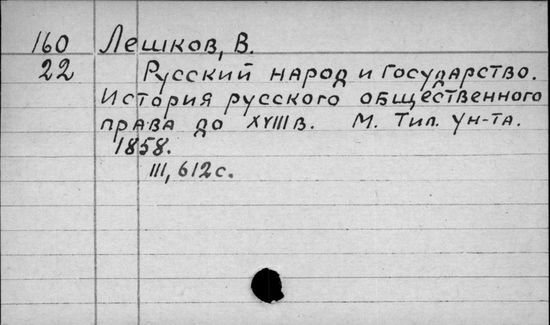 160 Лешков, В.
22 Русский народ и государство.
История русского общественного
права до XVIII в. М. Тип. ун-та.
1858.
III, 612 с.